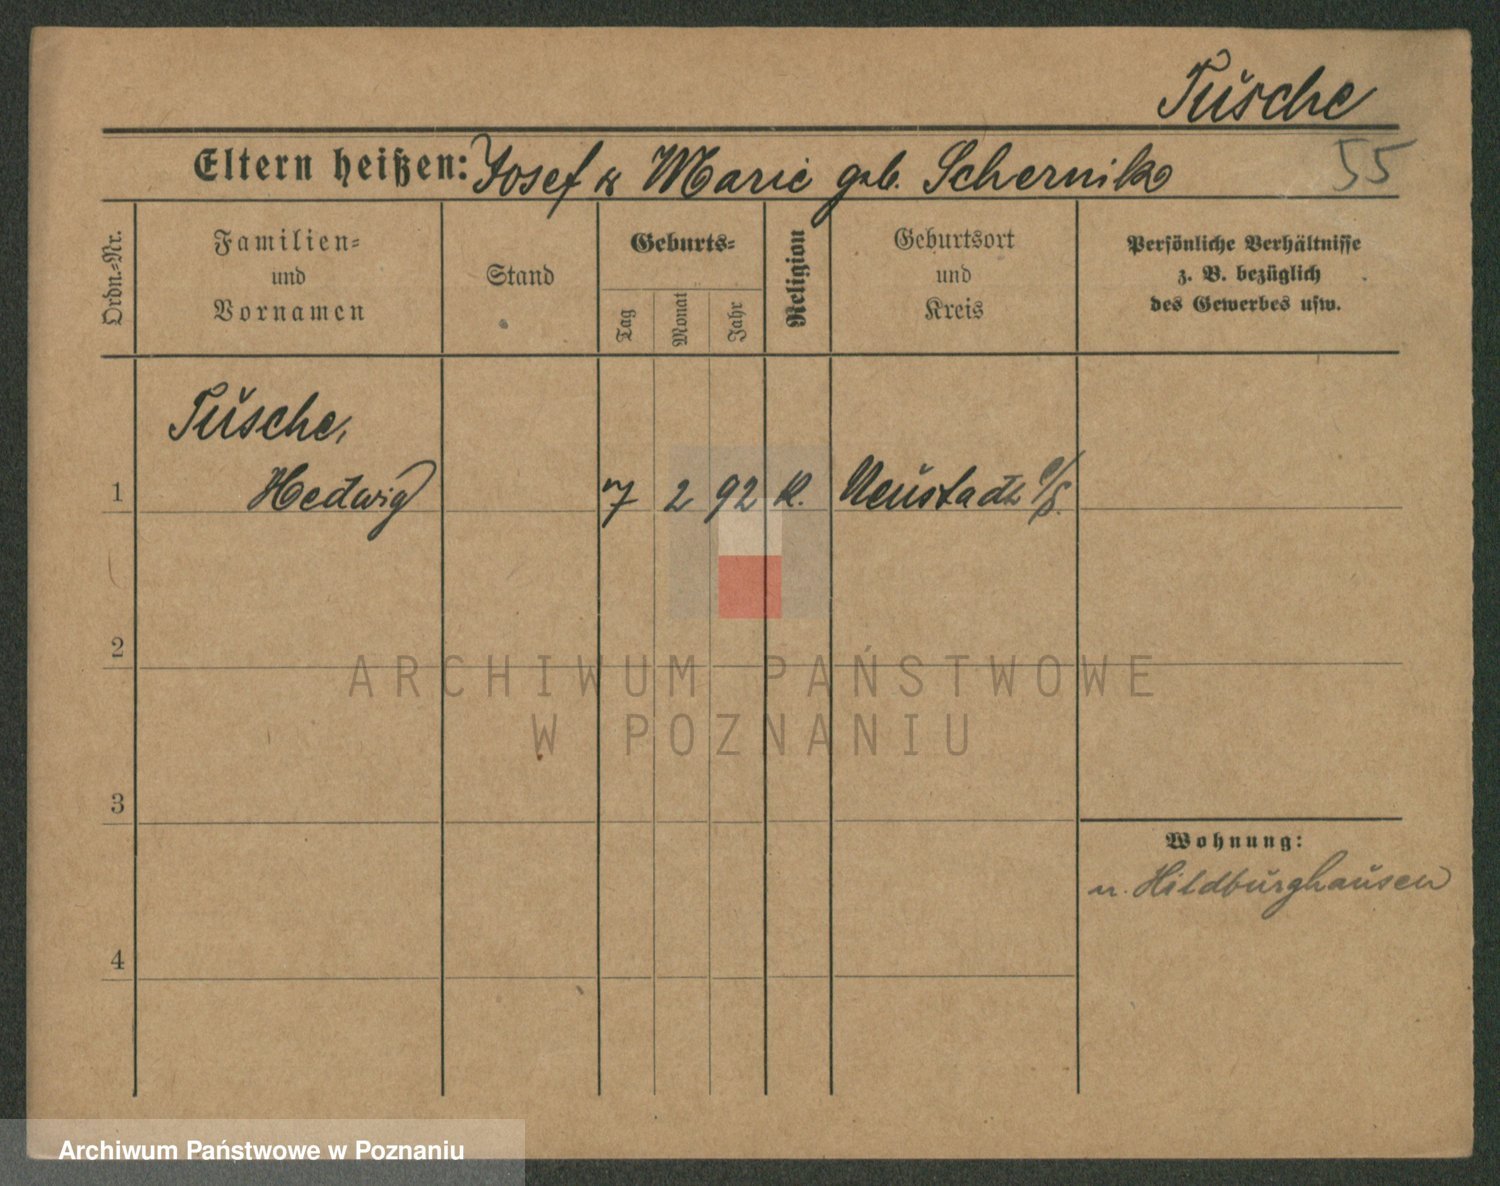 Tusche
Eltern heißen: Josef & Marie geb. Schernik
55
Ordn.-Nr.
Familien-
und
Vornamen
Stand
Geburts-
Tag
Monat
Jahr
Religion
Geburtsort
und
Kreis
Persönliche Verhältnisse
z. B. bezüglich
des Gewerbes usw.
Tusche,
1 Hedwig 7 2 92 K. Neustadt O/S.
2
ARCHIWUM PAŃSTWOWE
W POZNANIU
3
Wohnung:
n. Hildburghausen
4
Archiwum Państwowe w Poznaniu